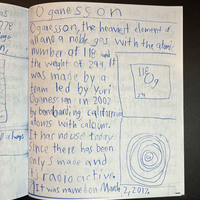 Oganesson
Oganesson, the heaviest element of
all and a noble gas with the atomic
number of 118 and
the weight of 294. It
was made by a
team led by Yuri
Oganessian in 2002
by bombarding californium
atoms with calcium.
It has no use today
since there has been
only 5 made and
its radioactive.
It was named on March 2, 2017
118
Og
294